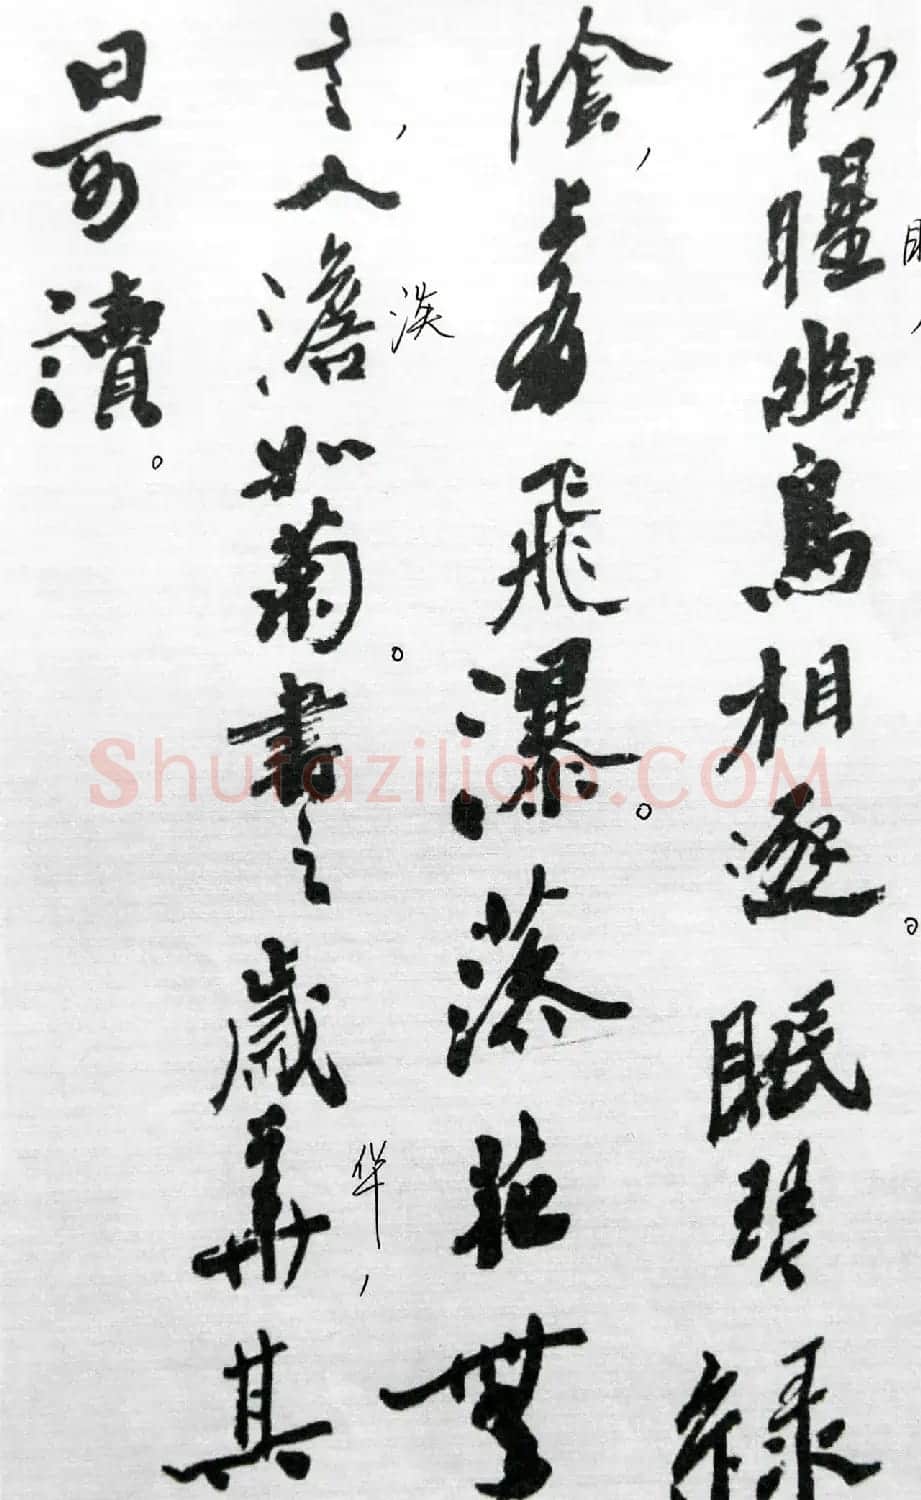 初暒幽鳥相逐。眠琴綠
陰,上有飛瀑。落花無
言,人澹如菊。書之歲華,其
淡
华
曰可讀。
Shufaziliao.COM